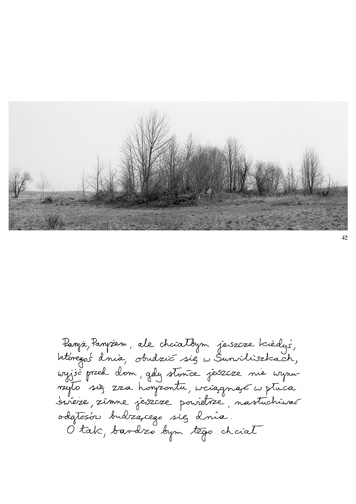 42
Paryż, Paryżem, ale chciałbym jeszcze kiedyś,
któregoś dnia, obudzić się w Surwiliszkach,
wyjść przed dom, gdy słońce jeszcze nie wynu-
rzyło się zza horyzontu, wciągnąć w płuca
świeże, zimne jeszcze powietrze, nasłuchiwać
odgłosów budzącego się dnia.
O tak, bardzo bym tego chciał